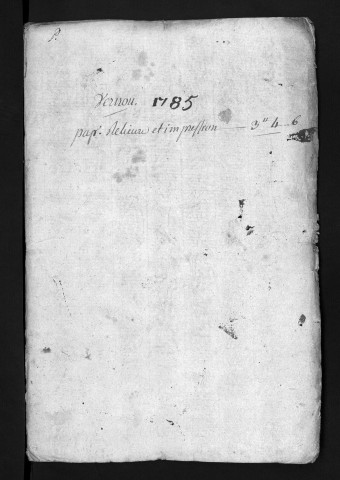 P.
Vernou. 1785
pap.r Relieure et impression — 3tt 4 6